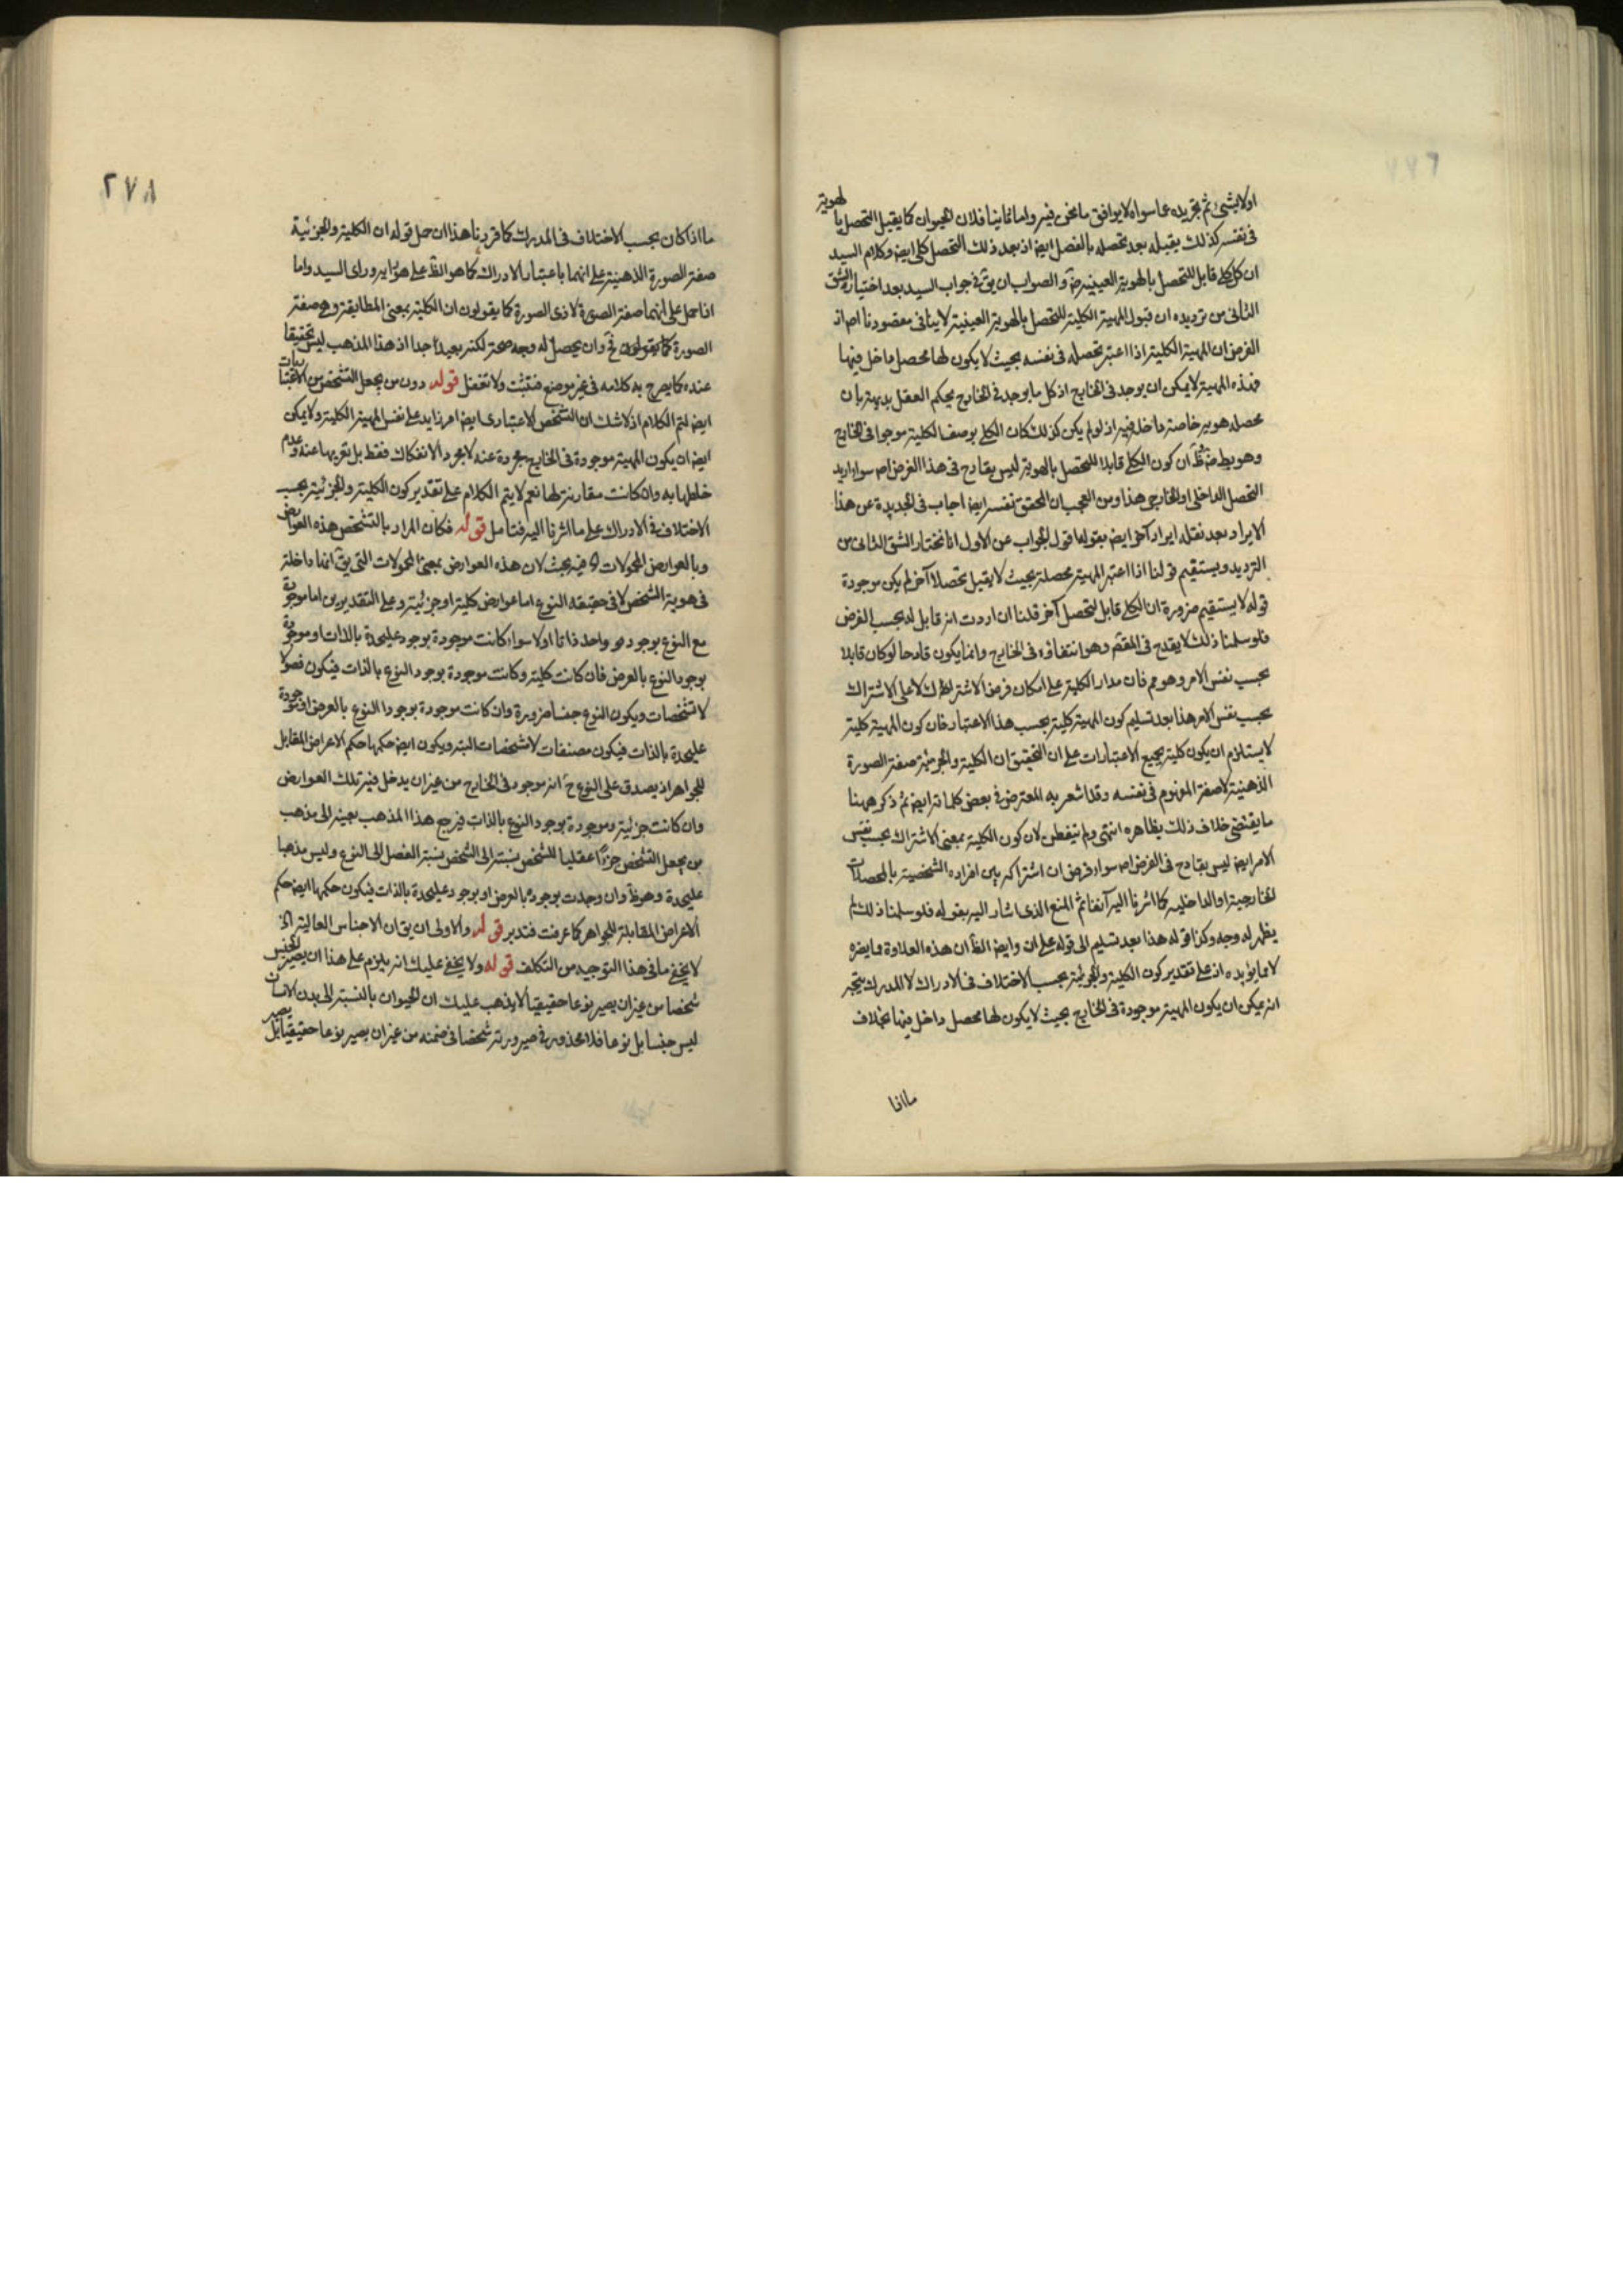 اولا بشئ ثم تجريده عما سواه لا يوافق ما نحن فيه واما ثانيا فلان الحيوان كما يقبل التحصل بالهوية
فى نفسه كذلك يقبله بعد تحصله بالفصل ايض اذ بعد ذلك التحصل كلى ايض وكلام السيد
ان كل كلى قابل للتحصل بالهوية العينية والصواب ان يق فى جواب السيد بعد اختيار الشق
الثانى من ترديده ان قبول المهية الكلية للتحصل بالهوية العينية لا ينافى مقصودنا اص اذ
الغرض ان المهية الكلية اذا اعتبر تحصله فى نفسه بحيث لا يكون لها محصل داخل فيها
فهذه المهية لا يمكن ان يوجد فى الخارج اذ كل ما يوجد فى الخارج يحكم العقل بديهة بان
محصله هوية خاصة داخلة فيه اذ لو لم يكن كذلك كان الكلى بوصف الكلية موجودا فى الخارج
وهو بط ان كون الكلى قابلا للتحصل بالهوية ليس بقادح فى هذا الغرض اص سواء اريد
التحصل الداخلى او الخارجى هذا ومن العجب ان المحقق نفسه ايض اجاب فى الجديدة عن هذا
الايراد بعد نقله ايراد آخر ايض بقوله اقول الجواب عن الاول انا نختار الشق الثانى من
الترديد ويستقيم قولنا اذا اعتبر المهية محصلة بحيث لا يقبل تحصلا آخر لم يكن موجودة
قوله لا يستقيم ضرورة ان الكلى قابل لتحصل آخر قلنا ان اردت انه قابل له بحسب الفرض
فلو سلمنا ذلك لا يقدح فى المقص وهو انتفاؤه فى الخارج وانما يكون قادحا لو كان قابلا
بحسب نفس الامر وهو مم فان مدار الكلية على امكان فرض الاشتراك لا على الاشتراك
بحسب نفس الامر هذا بعد تسليم كون المهية كلية بحسب هذا الاعتبار فان كون المهية كلية
لا يستلزم ان يكون كلية بجميع الاعتبارات على ان التحقيق ان الكلية والجزئية صفة الصورة
الذهنية لا صفة المفهوم فى نفسه وقد اشعر به المعترض فى بعض كلماته ايض ثم ذكر ههنا
ما يقتضى خلاف ذلك بظاهره انتهى ولم يتفطن لان كون الكلية بمعنى الاشتراك بحسب نفس
الامر ايض ليس بقادح فى الغرض اص سواء فرض ان اشتراكه بين افراده الشخصية بالمحصلات
الخارجية او الداخلية كما اشرنا اليه آنفا ثم المنع الذى اشار اليه بقوله فلو سلمنا ذلك لم
يظهر له وجه وكذا قوله هذا بعد تسليم الى قوله على ان وايض الظ ان هذه العلاوة مما يضره
لا مما يؤيده اذ على تقدير كون الكلية والجزئية بحسب الاختلاف فى الادراك لا المدرك يتجه
انه يمكن ان يكون المهية موجودة فى الخارج بحيث لا يكون لها محصل داخل فيها بخلاف
ما اذا
٢٧٨
ما اذا كان بحسب الاختلاف فى المدرك كما قررنا هذا ان حمل قوله ان الكلية والجزئية
صفة الصورة الذهنية على انهما باعتبار الادراك كما هو الظ على ما يراه وراى السيد واما
اذا حمل على انهما صفة الصورة لا ذى الصورة كما يقولون ان الكلية بمعنى المطابقة وهى صفة
الصورة كما يقولون فح وان يحصل له وجه صحة لكنه بعيد جدا اذ هذا المذهب ليس تحقيقا
عنده كما يصرح به كلامه فى غير موضع فتثبت ولا تغفل قوله دون من يجعل التشخص من الاعتباريات
ايض لتم الكلام اذ لا شك ان التشخص الاعتبارى ايض امر زايد على نفس المهية الكلية ولا يمكن
ايض ان يكون المهية موجودة فى الخارج مجردة عنه لا بمجرد الانفكاك فقط بل تعريها عنه وعدم
خلطها به وان كانت مقارنة لها نعم لا يتم الكلام على تقدير كون الكلية والجزئية بحسب
الاختلاف فى الادراك على ما اشرنا اليه فتامل قوله فكان المراد بالتشخص هذه العوارض
وبالعوارض المحمولات فيه بحث لان هذه العوارض بمعنى المحمولات التى يق انها داخلة
فى هوية الشخص لا فى حقيقة النوع اما عوارض كلية او جزئية وعلى التقديرين اما موجودة
مع النوع بوجود واحد ذاتا اولا سواء كانت موجودة بوجود عليحدة بالذات او موجودة
بوجود النوع بالعرض فان كانت كلية وكانت موجودة بوجود النوع بالذات فيكون فصولا
لا تشخصات ويكون النوع جنسا ضرورة وان كانت موجودة بوجود النوع بالعرض او موجودة
عليحدة بالذات فيكون مصنفات لا مشخصات البتة ويكون ايض حكمها حكم الاعراض المقابل
للجواهر اذ يصدق على النوع ح انه موجود فى الخارج من غير ان يدخل فيه تلك العوارض
وان كانت جزئية وموجودة بوجود النوع بالذات فيرجع هذا المذهب بعينه الى مذهب
من يجعل التشخص جزءا عقليا للشخص نسبته الى الشخص نسبة الفصل الى النوع وليس مذهبا
عليحدة وهو ظ وان وجدت بوجوده بالعرض او بوجود عليحدة بالذات فيكون حكمها ايض حكم
الاعراض المقابلة للجواهر كما عرفت فتدبر قوله والاولى ان يق ان الاجناس العالية الخ
لا يخفى ما فى هذا التوجيه من التكلف قوله ولا يخفى عليك انه يلزم على هذا ان يصير الجنس
شخصا من غير ان يصير نوعا حقيقيا لا يذهب عليك ان الحيوان بالنسبة الى بدن الانسان
ليس جنسا بل نوعا فلا محذور فى صيرورته شخصا فى ضمنه من غير ان يصير نوعا حقيقيا بل يصير